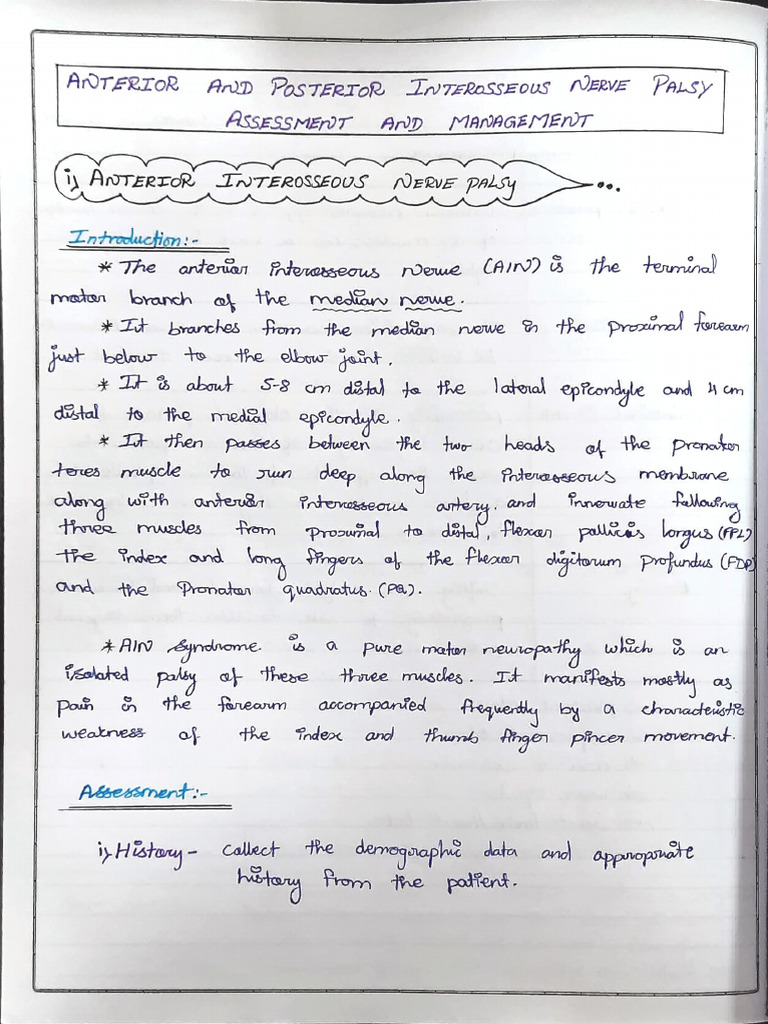 ANTERIOR AND POSTERIOR INTEROSSEOUS NERVE PALSY
ASSESSMENT AND MANAGEMENT
i) ANTERIOR INTEROSSEOUS NERVE PALSY ...
Introduction:-
* The anterior interosseous nerve (AIN) is the terminal
motor branch of the median nerve.
* It branches from the median nerve in the proximal forearm
just below to the elbow joint.
* It is about 5-8 cm distal to the lateral epicondyle and 4 cm
distal to the medial epicondyle.
* It then passes between the two heads of the pronator
teres muscle to run deep along the interosseous membrane
along with anterior interosseous artery. and innervate following
three muscles from proximal to distal, flexor pollicis longus (FPL)
the index and long fingers of the flexor digitorum profundus (FDP)
and the Pronator quadratus. (PQ).
* AIN syndrome is a pure motor neuropathy which is an
isolated palsy of these three muscles. It manifests mostly as
pain in the forearm accompanied frequently by a characteristic
weakness of the index and thumb finger pincer movement.
Assessment:-
i) History - collect the demographic data and appropriate
history from the patient.